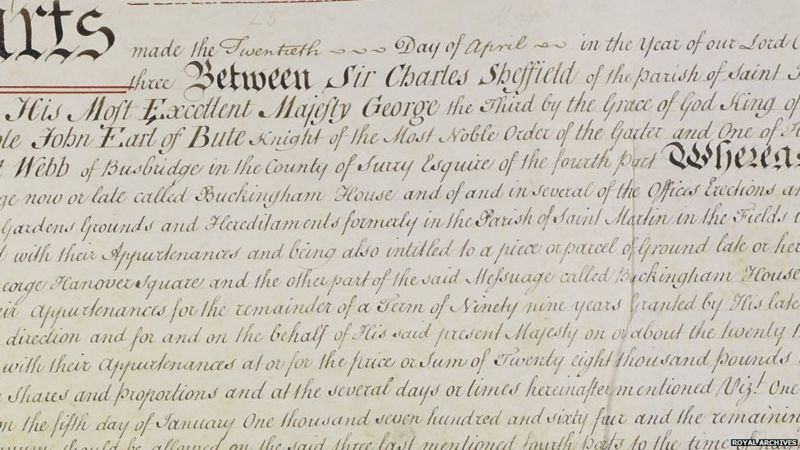 arts made the Twentieth Day of April in the Year of our Lord
three Between Sir Charles Sheffield of the Parish of Saint
His Most Excellent Majesty George the Third by the Grace of God King of
John Earl of Bute Knight of the Most Noble Order of the Garter and One of
Webb of Busbridge in the County of Surry Esquire of the fourth Part Whereas
now or late called Buckingham House and of and in several of the Offices Erections
Gardens Grounds and Hereditaments formerly in the Parish of Saint Martin in the Fields
with their Appurtenances and being also intitled to a piece or parcel of Ground late or
George Hanover Square and the other part of the said Messuage called Buckingham House
Appurtenances for the remainder of a Term of Ninety nine years Granted by His late
direction and for and on the behalf of His said present Majesty on or about the twenty
with their Appurtenances at or for the price or Sum of Twenty eight thousand Pounds
Shares and Proportions and at the several days or times hereinafter mentioned Vizt. One
on the fifth day of January One thousand seven hundred and sixty four and the remaining
should be allowed on the said three last mentioned fourth Parts to the time of
ROYAL ARCHIVES